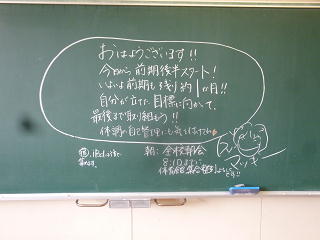 おはようございます!!
今日から前期後半スタート!
いよいよ前期も残り約1ヶ月!!
自分が立てた目標に向かって、
最後まで取り組もう!!
体調の自己管理にも気をつけてね
朝:全校朝会
8:10までに
体育館集合整列
マッキー